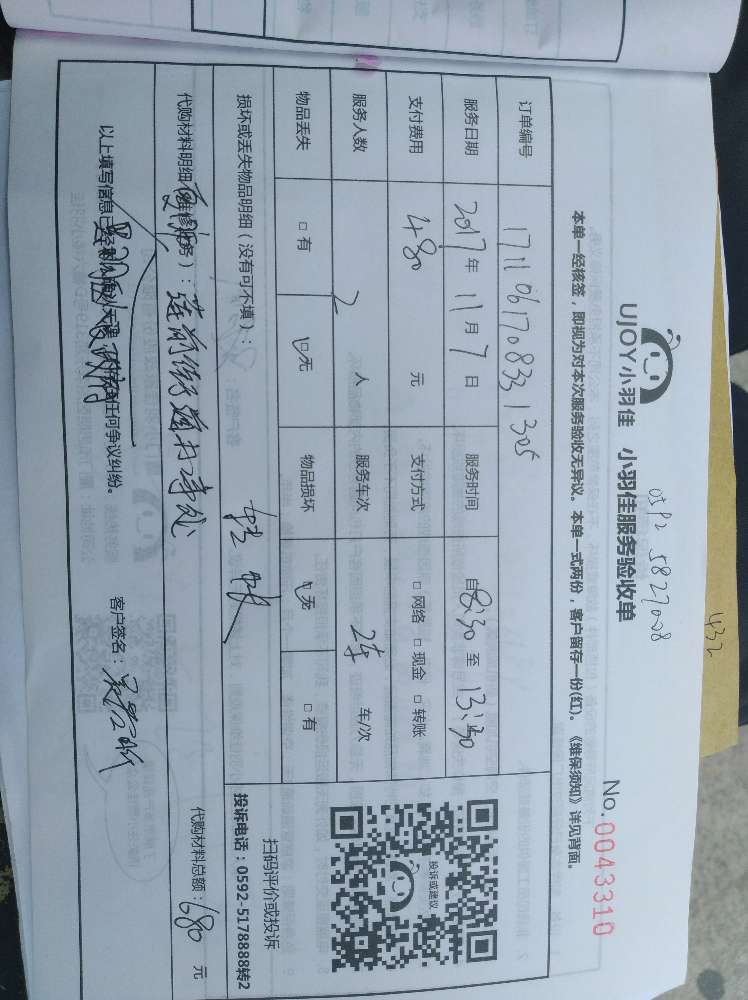 432
0592 5827008
UJOY小羽佳 小羽佳服务验收单
No.0043310
本单一经核签，即视为对本次服务验收无异议。本单一式两份，客户留存一份(红)。《维保须知》详见背面。
订单编号 1711061708331305
服务日期 2017年11月7日 服务时间 自8:30至13:30
支付费用 480元 支付方式 □网络 □现金 □转账
服务人数 2人 服务车次 2车 车/次
物品丢失 □有 □无 物品损坏 □无 □有
投诉或建议
扫码评价或投诉
投诉电话：0592-5178888转2
损坏或丢失物品明细（没有可不填）：
代购材料明细（维修业务）：莲前街道办事处
代购材料总额：680元
以上填写信息已经 任何争议纠纷。
客户签名：